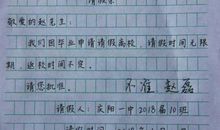 请假条
敬爱的赵先生:
我们因毕业申请请假离校,请假时间无限
期,返校时间不定。
请您批准。 不准 赵磊
请假人:庆阳一中2018届10班